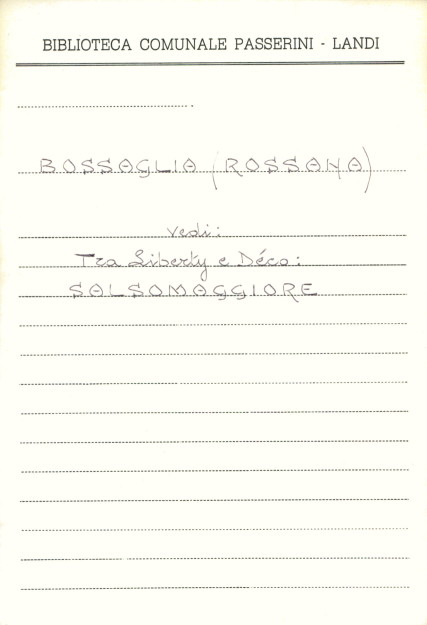 BIBLIOTECA COMUNALE PASSERINI - LANDI
BOSSAGLIA (ROSSANA)
Vedi:
Tra Liberty e Déco:
SALSOMAGGIORE